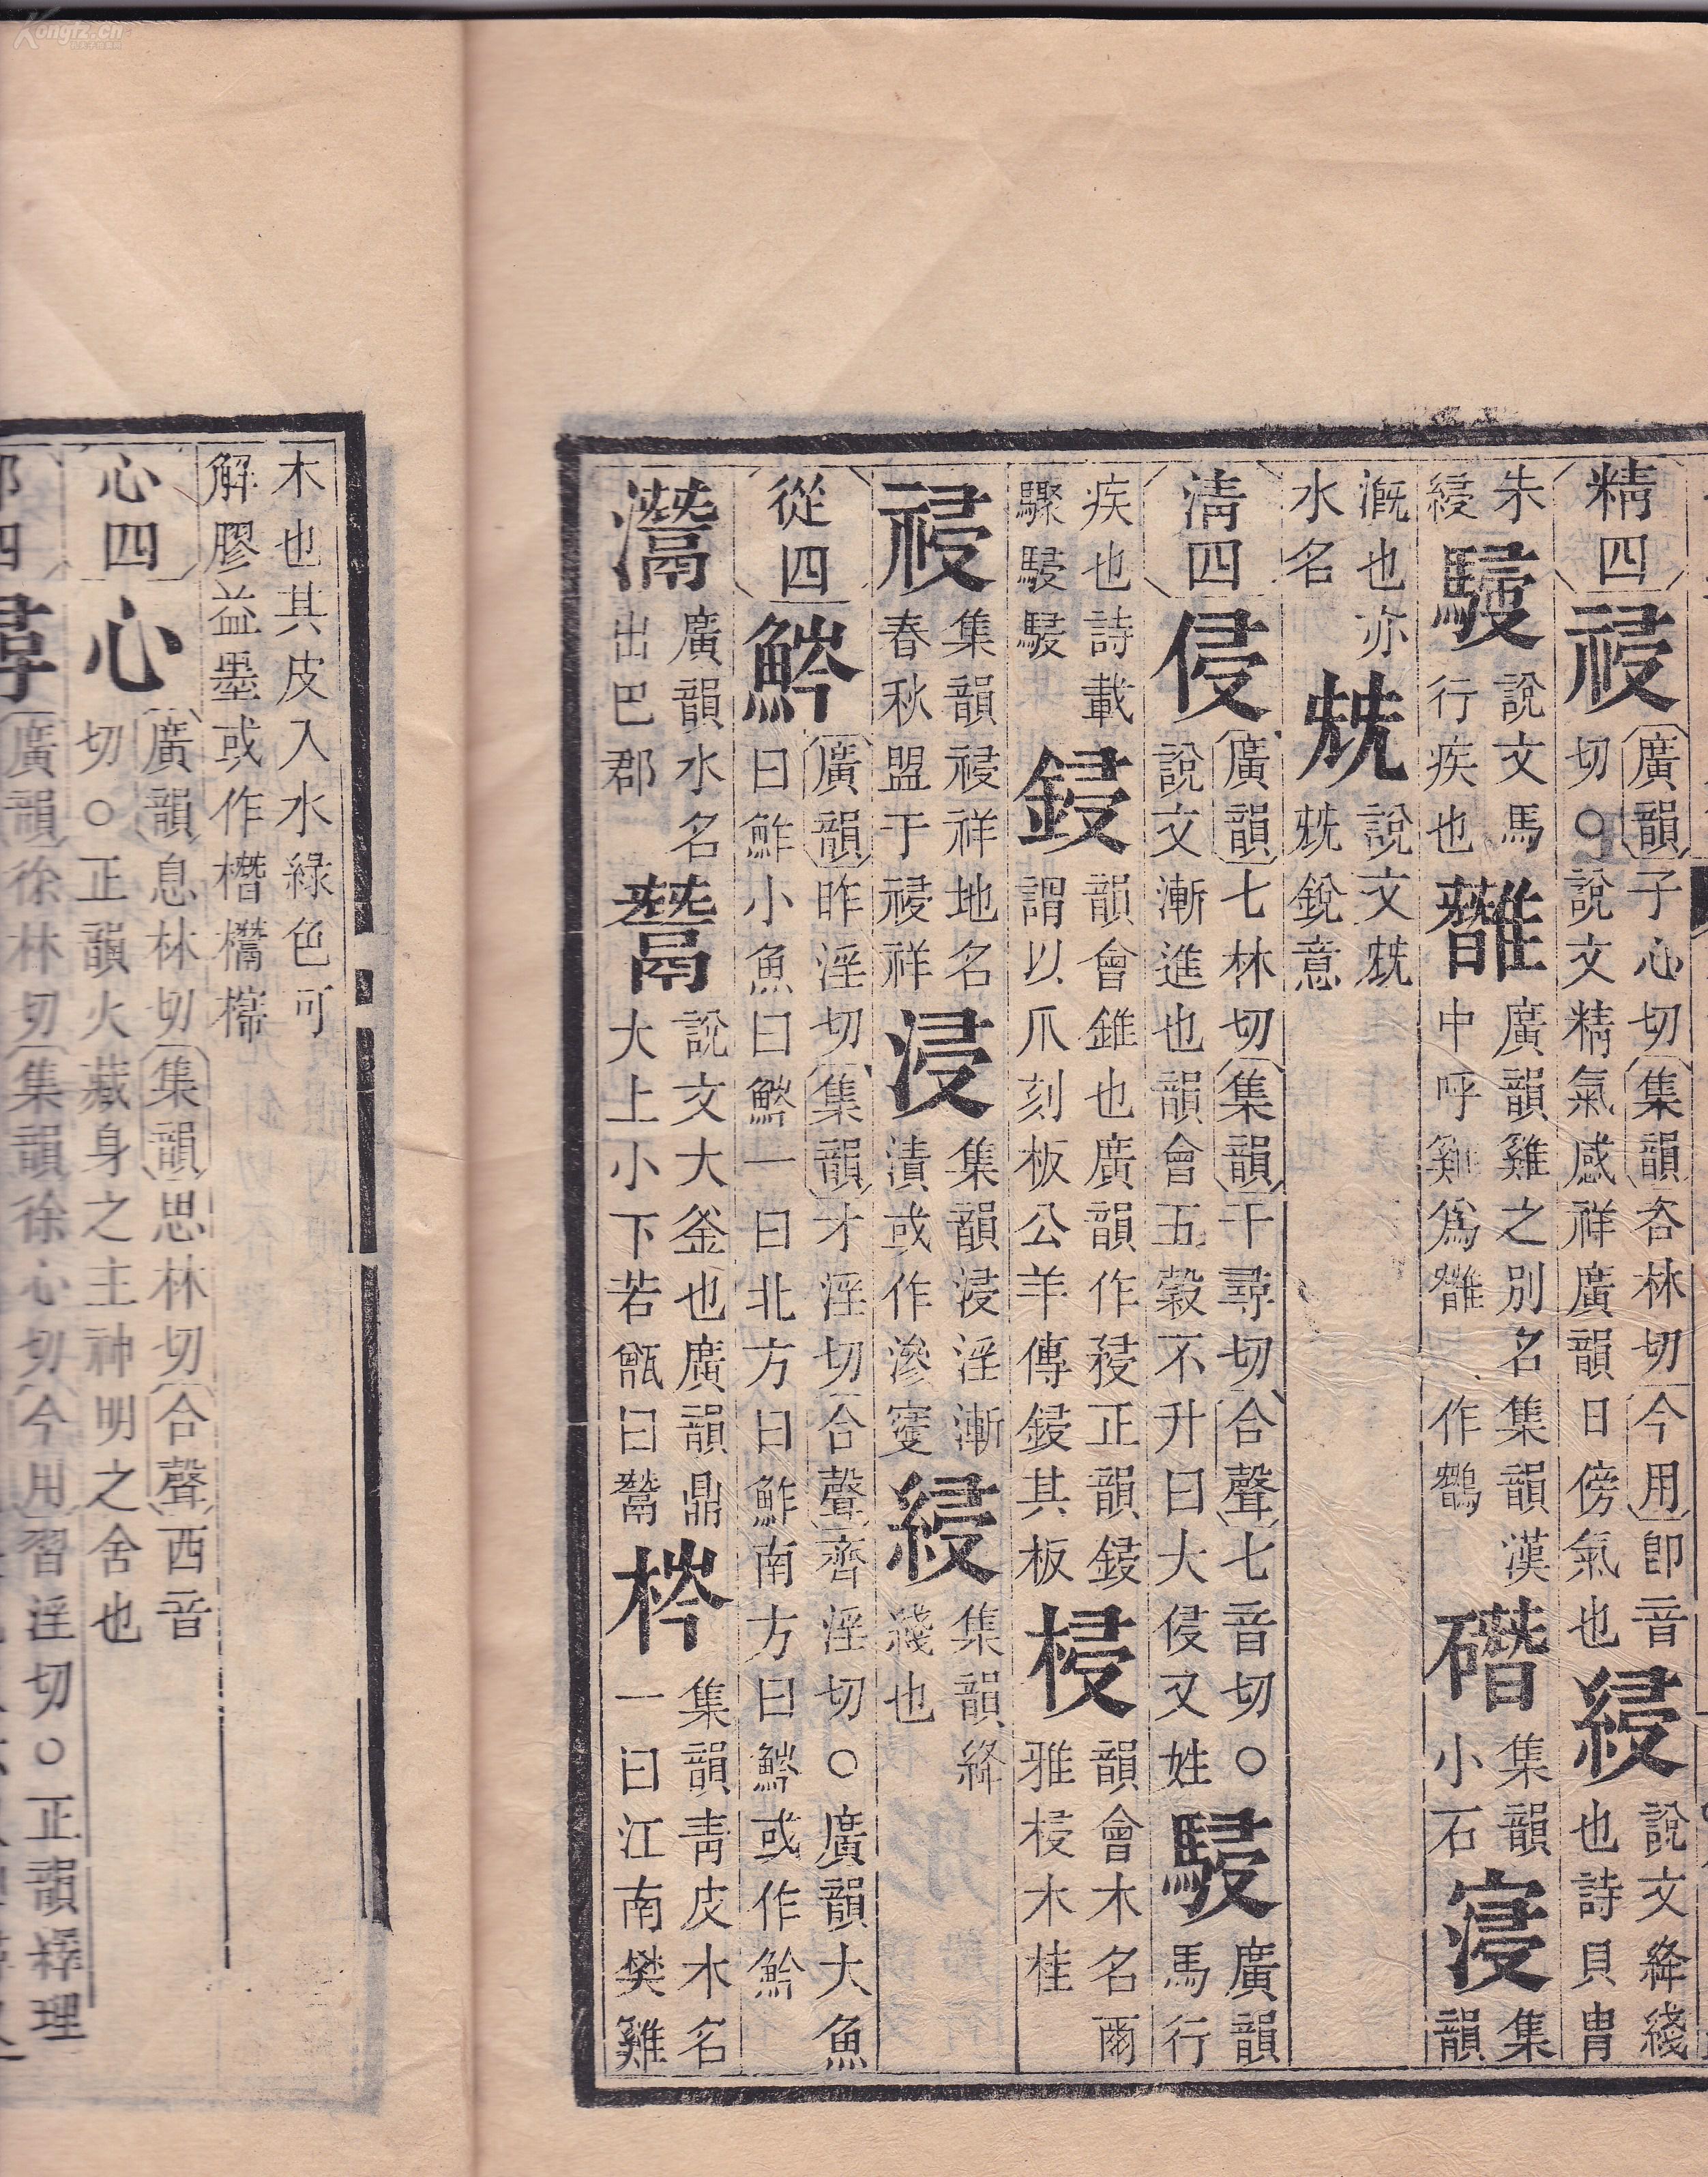 精四祲廣韻子心切集韻咨林切今用卽音
切○說文精氣感祥廣韻日傍氣也綅說文絳綫
也詩貝胄
朱
綅駸說文馬
行疾也
廣韻雞之別名集韻漢
中呼雞爲 作
䃡集韻
小石寖集
韻
漑也亦
水名兓說文兓
兓銳意
清四侵廣韻七林切集韻千尋切合聲七音切○
說文漸進也韻會五穀不升曰大侵又姓駸廣韻
馬行
疾也詩載
驟駸駸鋟韻會錐也廣韻作 正韻鋟
謂以爪刻板公羊傳鋟其板梫韻會木名爾
雅梫木桂
祲集韻祲祥地名
春秋盟于祲祥浸集韻浸淫漸
漬或作滲 綅集韻絳
綫也
從四䰼廣韻昨淫切集韻才淫切合聲齊淫切○廣韻大魚
曰鮓小魚曰䰼一曰北方曰鮓南方曰䰼或作魿
灊廣韻水名
出巴郡鬵說文大釜也廣韻鼎
大上小下若甑曰鬵梣集韻青皮木名
一曰江南樊雞
木也其皮入水綠色可
解膠益墨或作橬
心四心廣韻息林切集韻思林切合聲西音
切○正韻火藏身之主神明之舍也
邪四尋廣韻徐林切集韻徐心切今用習淫切○正韻繹理